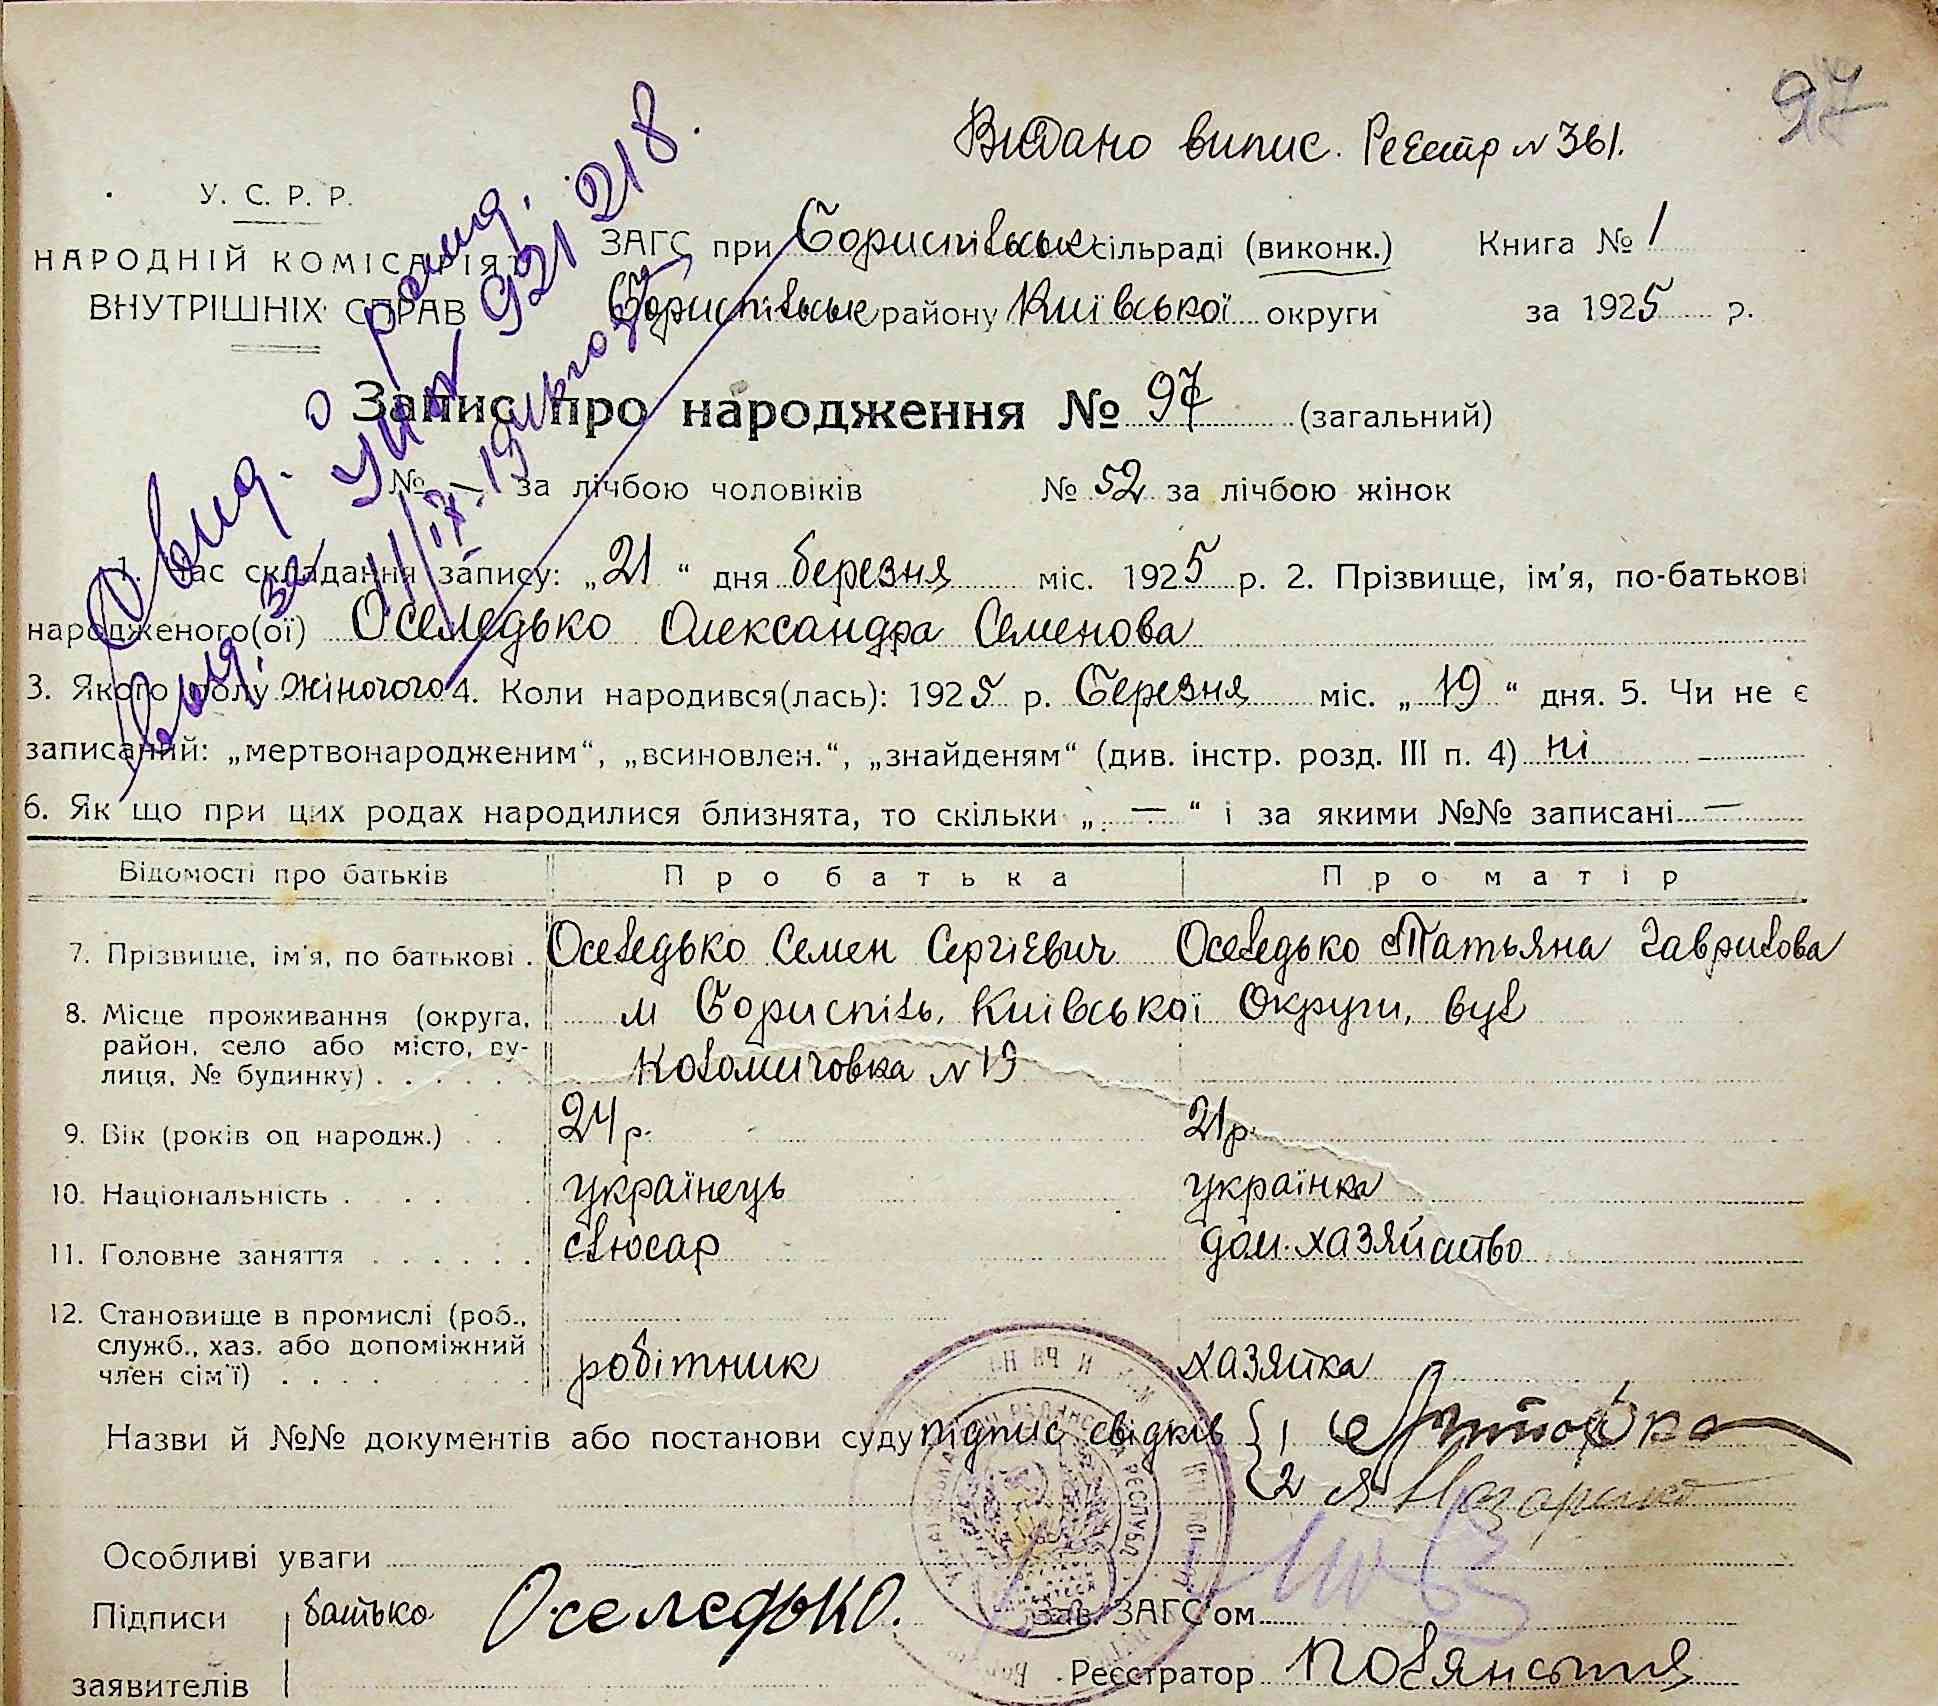 97
Видано випис. Реєстр № 361.
У. С. Р. Р.
НАРОДНІЙ КОМІСАРІЯТ
ВНУТРІШНІХ СПРАВ
ЗАГС при Бориспільськ сільраді (виконк.)
Книга № 1
Бориспільськ району Київської округи
за 1925 р.
921218.
Запис про народження № 97 (загальний)
№ — за лічбою чоловіків № 52 за лічбою жінок
1. Час складання запису: „21“ дня березня міс. 1925 р. 2. Прізвище, ім'я, по-батькові
народженого(ої) Оселедько Олександра Семенова
3. Якого полу жіночого 4. Коли народився(лась): 1925 р. Березня міс. „19“ дня. 5. Чи не є
записаний: „мертвонародженим“, „всиновлен.“, „знайденям“ (див. інстр. розд. III п. 4) ні
6. Як що при цих родах народилися близнята, то скільки „ — “ і за якими №№ записані —
Відомості про батьків Про батька Про матір
7. Прізвище, ім'я, по батькові . Оселедько Семен Сергієвич Оселедько Татьяна Гаврилова
8. Місце проживання (округа, район, село або місто, вулиця, № будинку) . . . . . м Бориспіль, Київської Округи, вул
Коломичовка № 19
9. Вік (років од народж.) . . 24 р. 21 р.
10. Національність . . . . . українець українка
11. Головне заняття . . . . . . слюсар дом. хазяйство
12. Становище в промислі (роб., служб., хаз. або допоміжний член сім'ї) . . . . робітник хазяйка
Назви й №№ документів або постанови суду підпис свідків { 1
2 Я Назаренко
Особливі уваги
Підписи батько Оселедько. Зав. ЗАГС'ом
заявителів Реєстратор